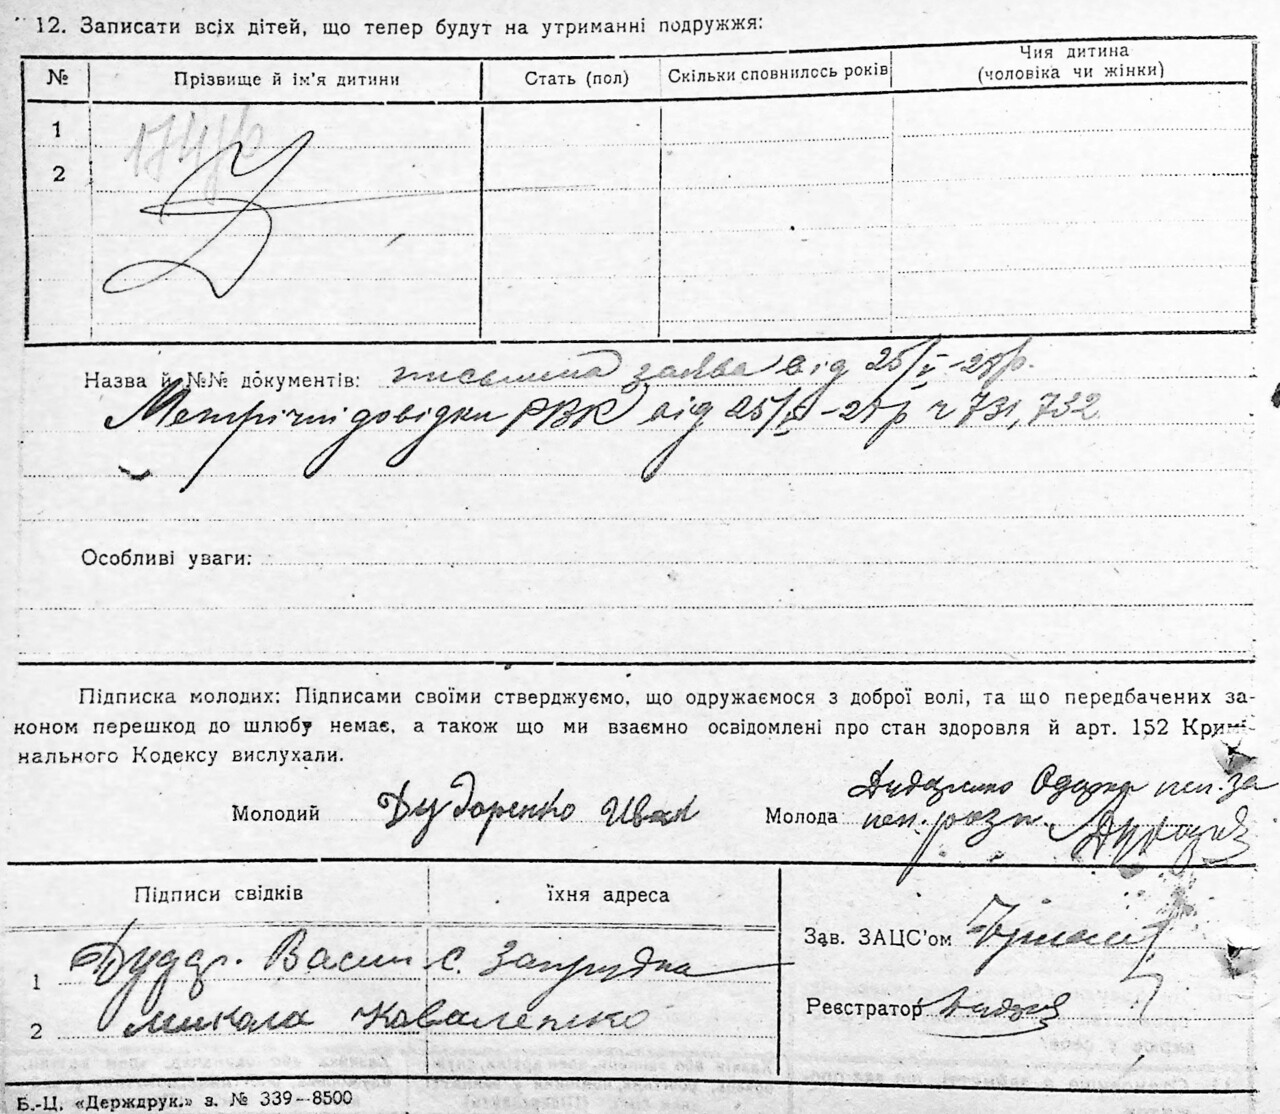 12. Записати всіх дітей, що тепер будут на утриманні подружжя:
№ Прізвище й ім'я дитини Стать (пол) Скільки сповнилось років Чия дитина (чоловіка чи жінки)
1
2
Назва й №№ документів: письмена заява від 25/V-25р.
Метричні довідки РВК від 25/V-25р ч 731, 732
Особливі уваги:
Підписка молодих: Підписами своїми стверджуємо, що одружаємося з доброї волі, та що передбачених за-
коном перешкод до шлюбу немає, а також що ми взаємно освідомлені про стан здоровля й арт. 152 Кримі-
нального Кодексу вислухали.
Одарка неп. за
Молодий Дудоренко Иван Молода неп. розп.
Підписи свідків їхня адреса
Зав. ЗАЦС'ом
1 Васил с. Запрудка
Реєстратор
2 Микола Коваленко
Б.-Ц. «Держдрук.» з. № 339—8500